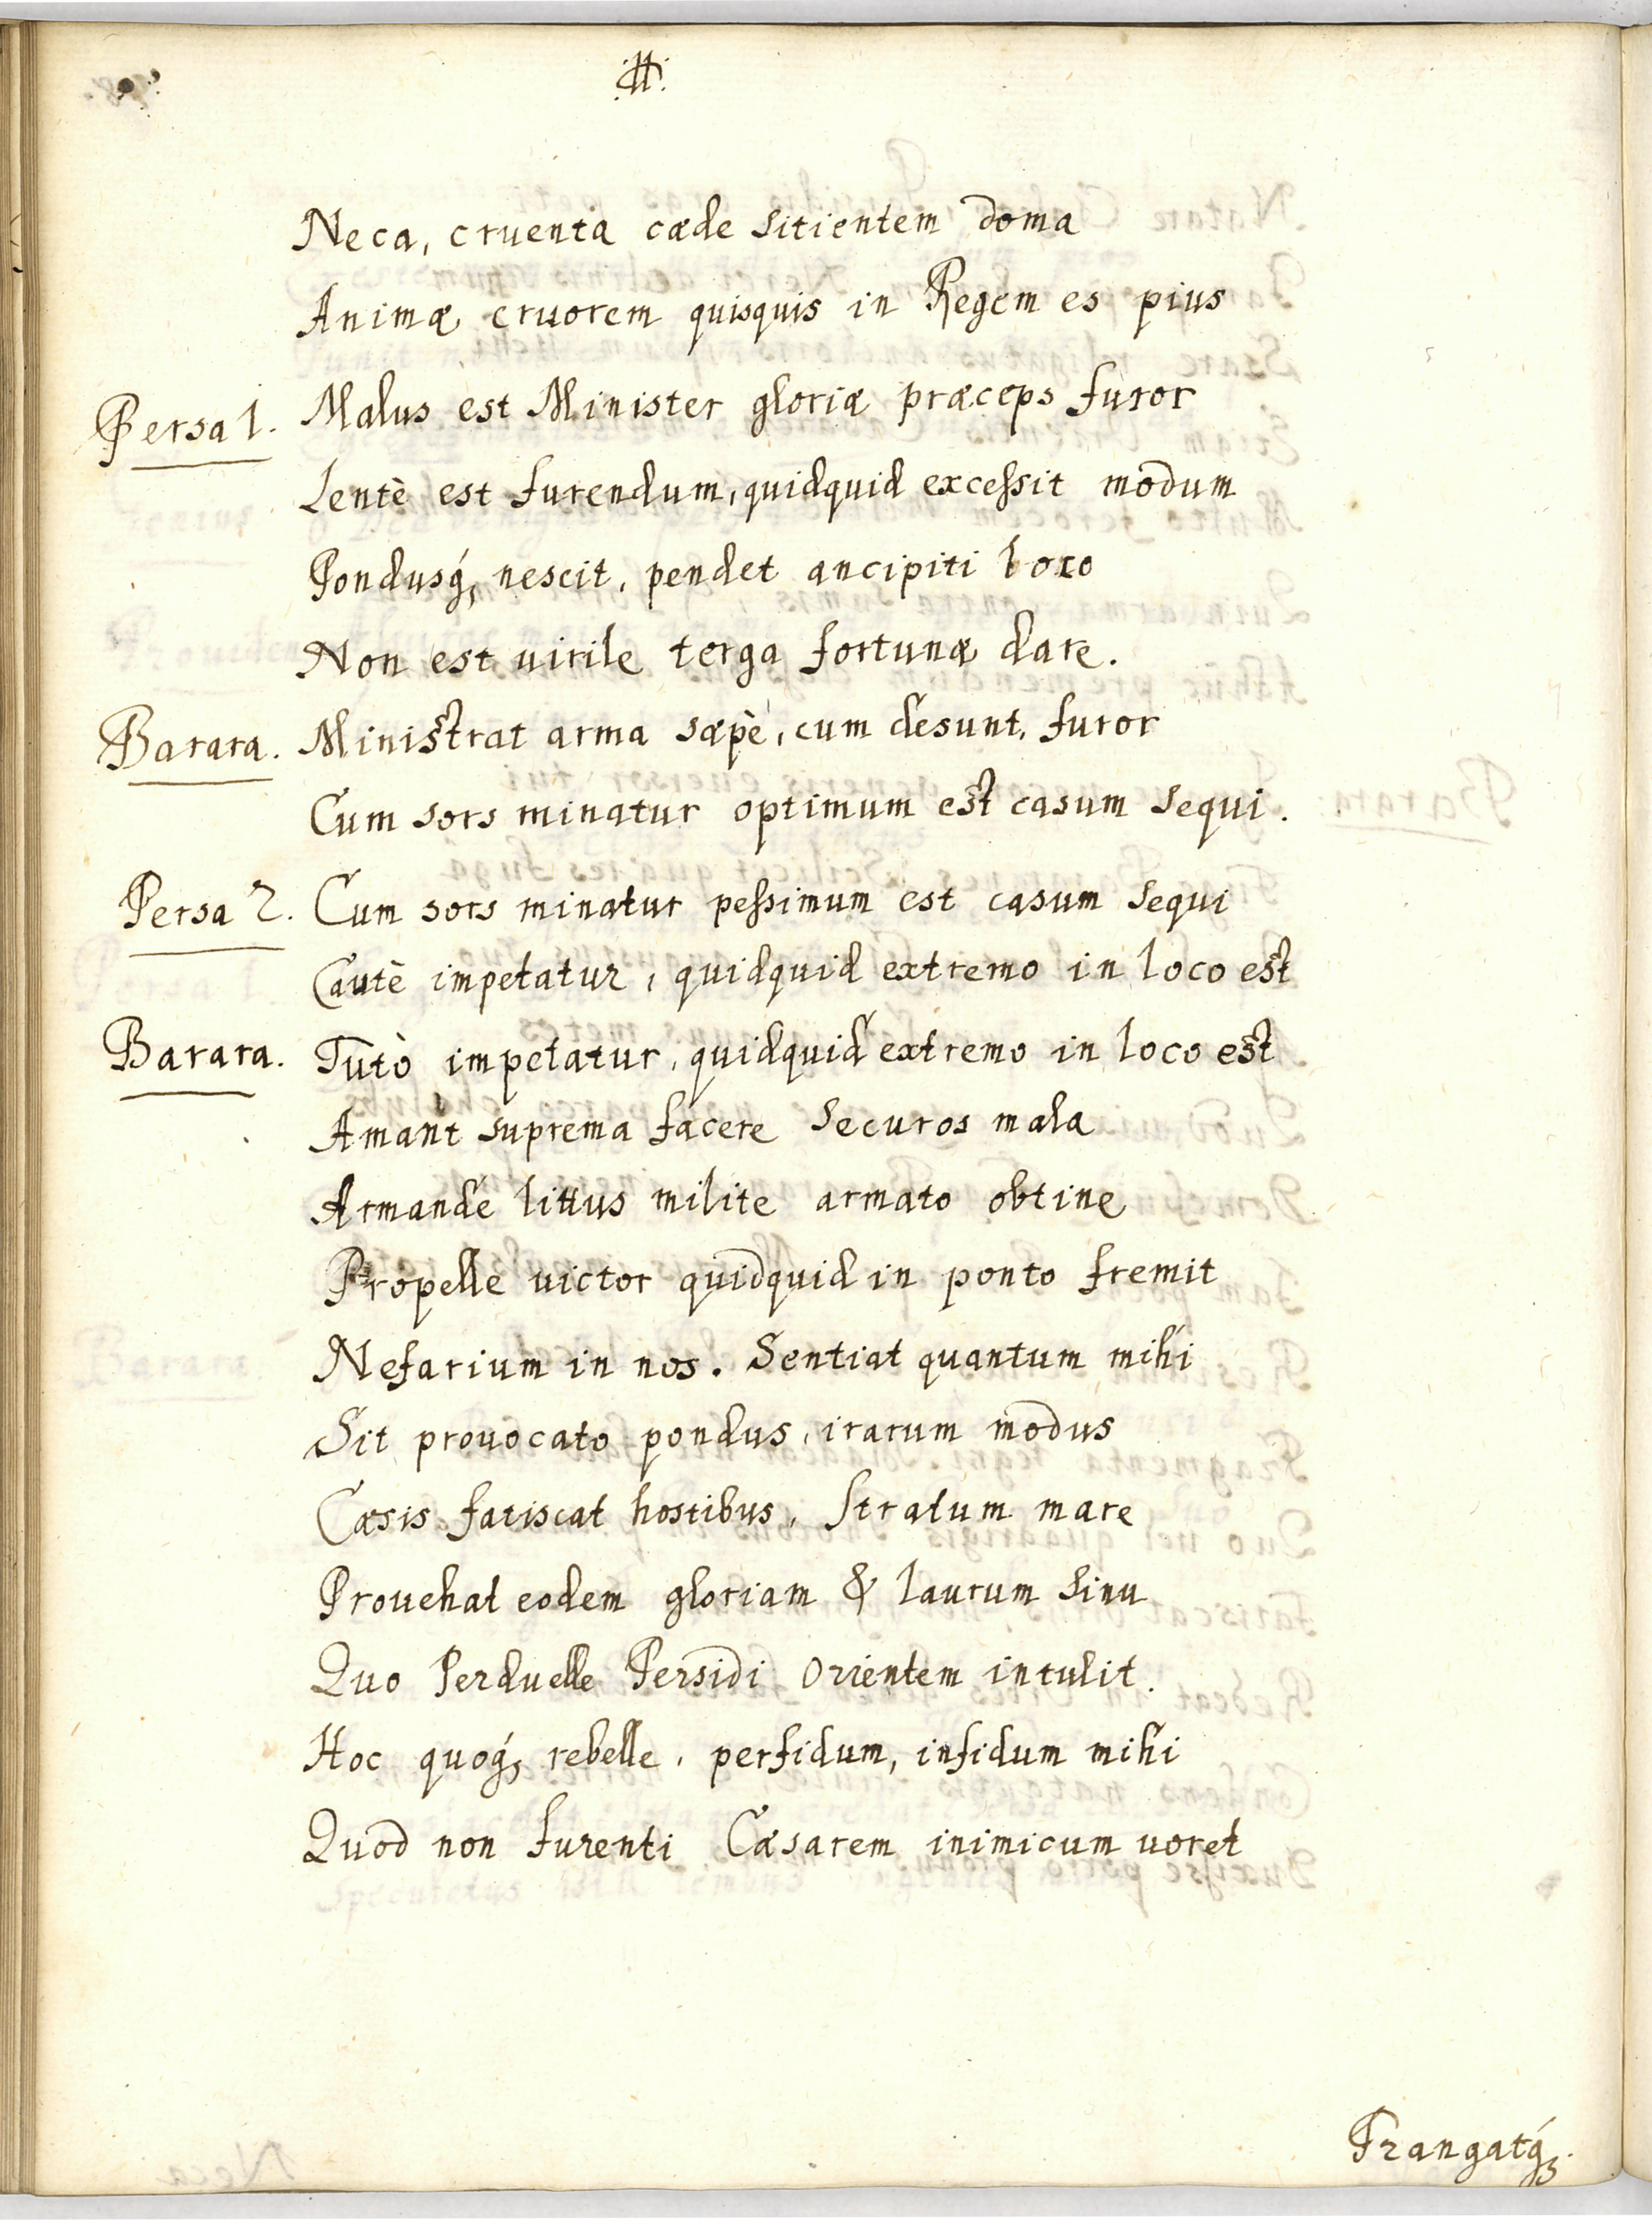 Neca, cruenta cæde sitientem doma
Animæ cruorem quisquis in Regem es pius
Persa 1. Malus est Minister gloriæ præceps furor
Lentè est furendum, quidquid excessit modum
Pondusq́; nescit, pendet ancipiti loco
Non est virile terga fortunæ dare.
Barara. Ministrat arma sæpè, cum desunt, furor
Cum sors minatur optimum est casum sequi.
Persa 2. Cum sors minatur pessimum est casum sequi
Cautè impetatur, quidquid extremo in loco est
Barara. Tutò impetatur, quidquid extremo in loco est
Amant suprema facere securos mala
Armande littus milite armato obtine
Propelle uictor quidquid in ponto fremit
Nefarium in nos. Sentiat quantum mihi
Sit prouocato pondus, irarum modus
Cæsis fatiscat hostibus, stratum mare
Prouehat eodem gloriam & laurum sinu
Quo Perduelle Persidi Orientem intulit.
Hoc quoq́; rebelle, perfidum, infidum mihi
Quod non furenti Cæsarem inimicum uoret
Frangatq́;